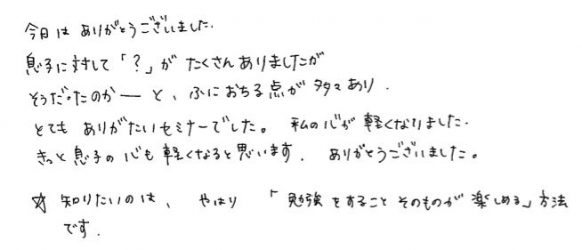 今日は ありがとうございました.
息子に対して「?」が たくさん ありましたが
そうだったのか ー と、ふにおちる点が 多々あり.
とても ありがたいセミナーでした。 私の心が 軽くなりました.
きっと 息子の心も 軽くなると思います. ありがとうございました。
☆ 知りたいのは、 やはり 「勉強をすること そのものが 楽しめる」方法
です.